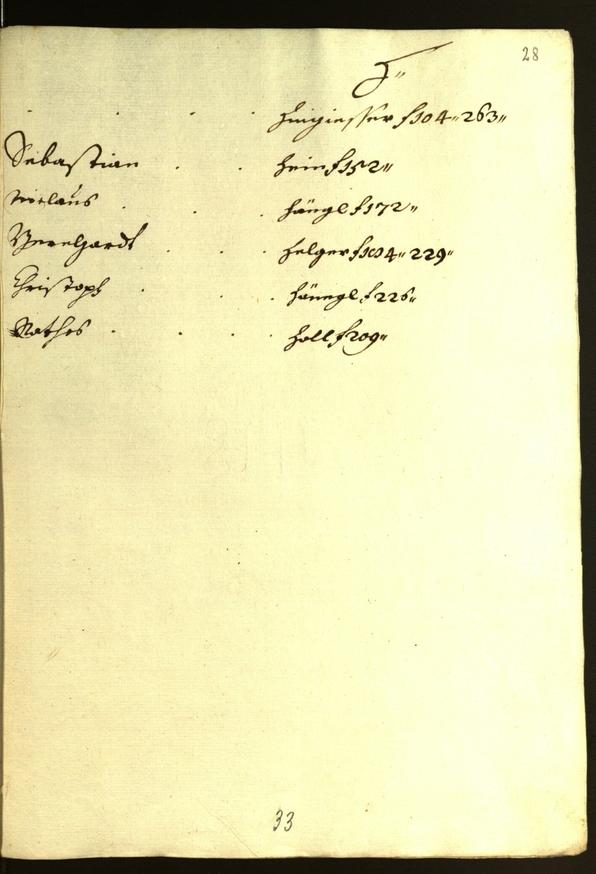 28
H"
. . . Heigiesser f 104" 263"
Sebastian . . Hein f 152"
Niclaus . . Hängl f 172"
Bernhardt . . Helger f 104" 229"
Christoph . . Hänngl f 226"
Mathes . . . Holl f 209"
33